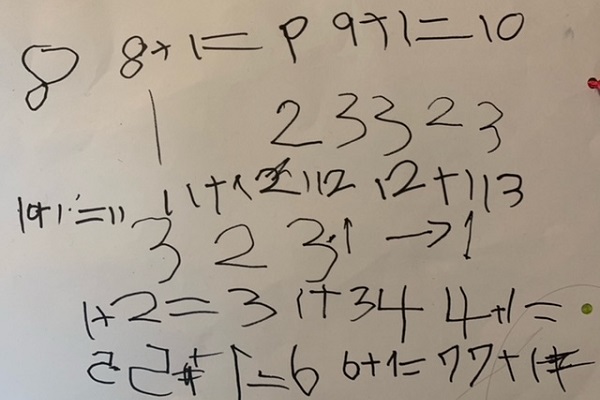 8 8+1= 9 9+1=10
1 2 3 3 2 3
10+1=11 11+1 12 12+1 13
3 2 3 1 → 1
1+2=3 1+3 4 4+1=
5 5+1=6 6+1=7 7+1=